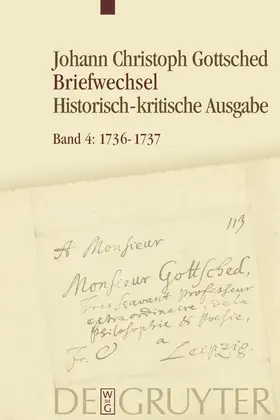 Johann Christoph Gottsched
Briefwechsel
Historisch-kritische Ausgabe
Band 4: 1736-1737
113
A Monsieur
Monsieur Gottsched,
Tres sçavant Professeur
extraordinaire de la
Philosophie & Poesie,
Fr. a Leipzig.
DE GRUYTER